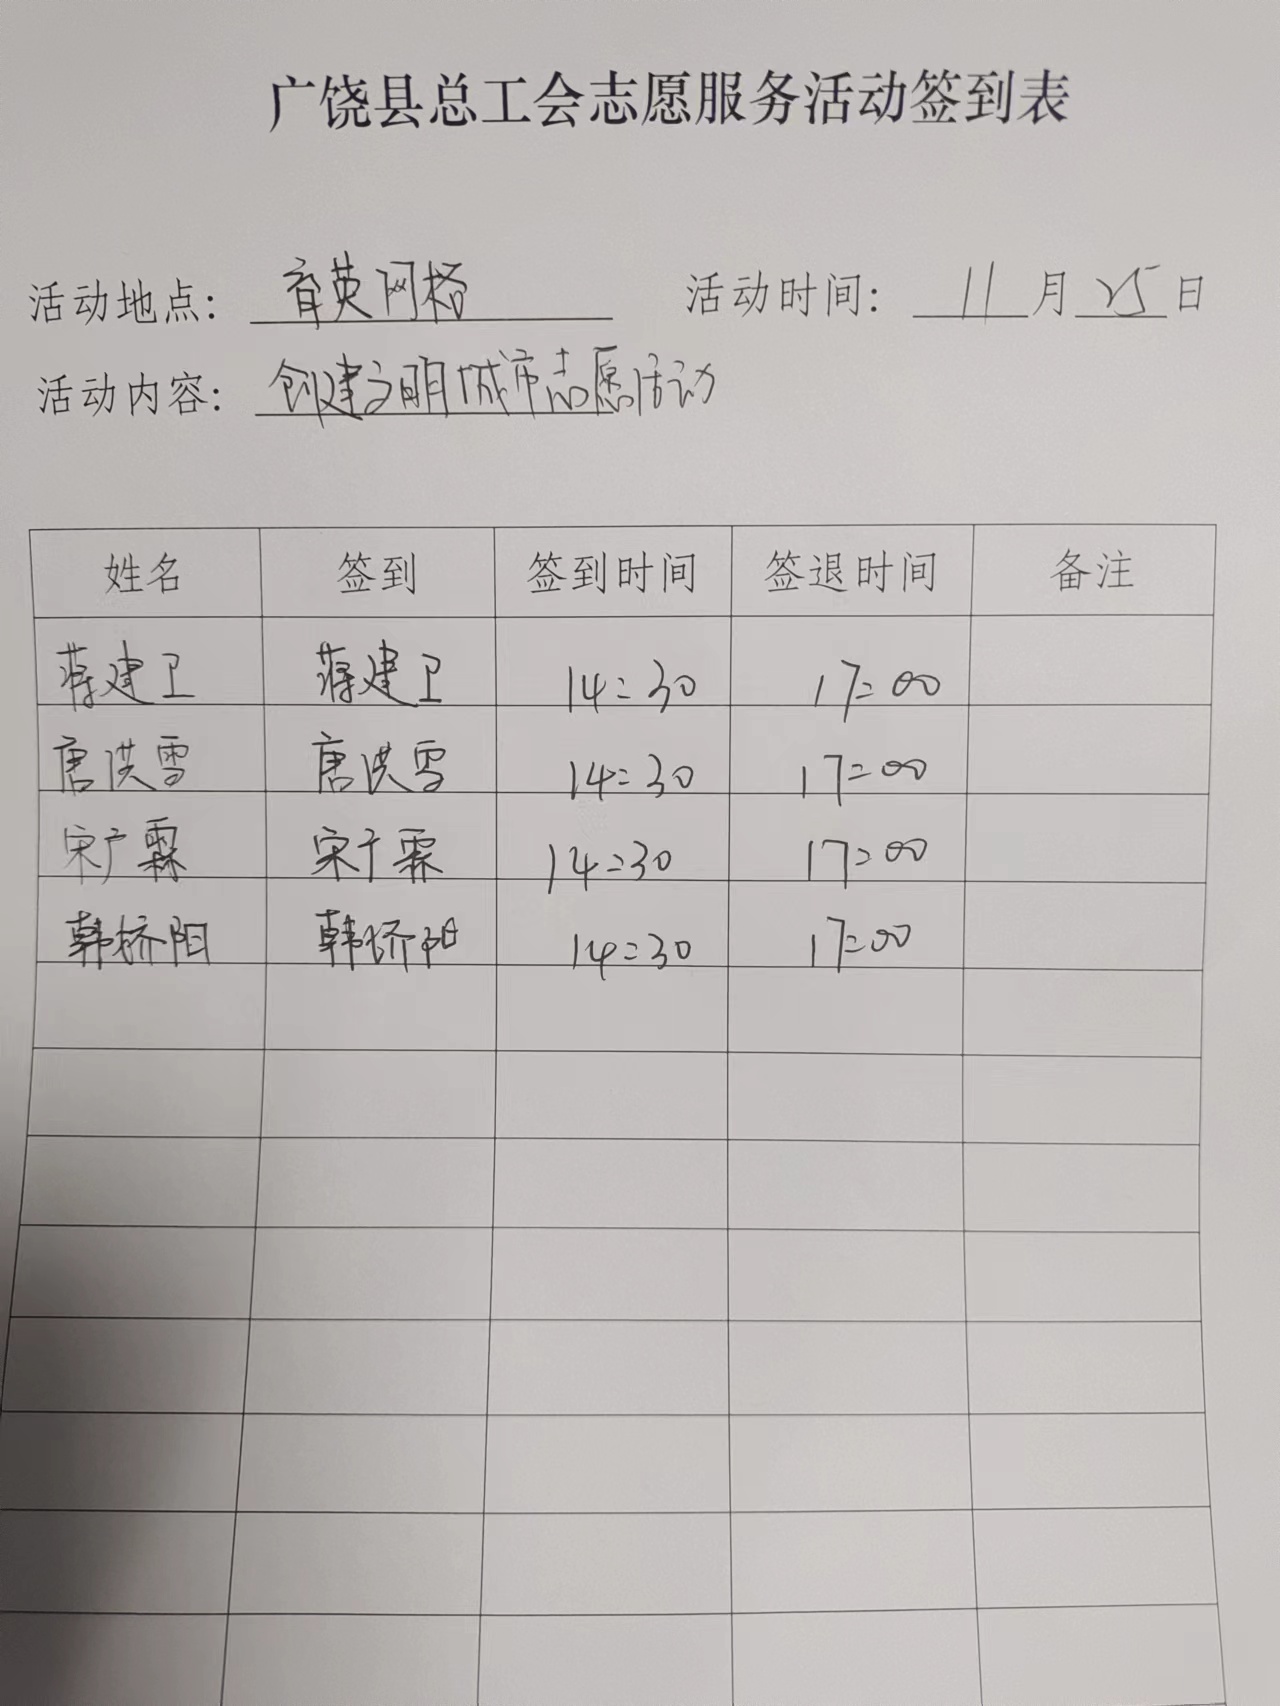 广饶县总工会志愿服务活动签到表
活动地点: 育英网格 活动时间: 11月25日
活动内容: 创建文明城市志愿活动
姓名 签到 签到时间 签退时间 备注
蒋建卫 蒋建卫 14:30 17:00
唐洪雪 唐洪雪 14:30 17:00
宋广霖 宋广霖 14:30 17:00
韩桥阳 韩桥阳 14:30 17:00